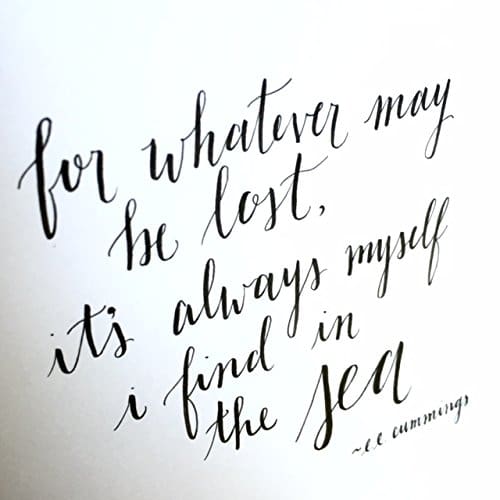 for whatever may
be lost,
it's always myself
i find in
the sea
~e.e. cummings